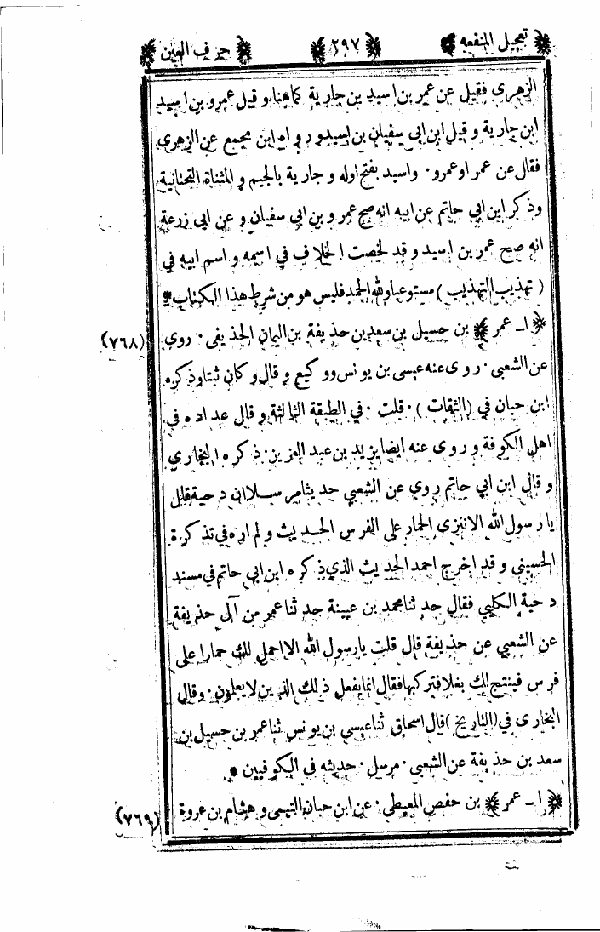 تعجيل المنفعة ٢٩٧ حرف العين
الزهرى فقيل عن عمر بن اسيد بن جارية كما هنا و قيل عمرو بن اسيد
ابن جارية و قيل ابن ابى سفيان بن اسيد ورواه ابن مجمع عن الزهرى
فقال عن عمر او عمرو ٠ واسيد بفتح اوله و جارية بالجيم و المثناة التحتانية
وذكر ابن ابي حاتم عن ابيه انه صحح عمرو بن ابى سفيان و عن ابى زرعة
انه صحح عمر بن اسيد و قد لخصت الخلاف في اسمه و اسم ابيه في
( تهذيب التهذيب ) مستوعبا ولله الحمد فليس هو من شرط هذا الكتاب *
(٧٦٨) * ا ـ عمر * بن حسيل بن سعد بن حذيفة بن اليمان الحذيفى ٠ روى
عن الشعبي ٠ روى عنه عيسى بن يونس ووكيع و قال و كان ثقة وذكره
ابن حبان في (الثقات) ٠ قلت ٠ في الطبقة الثالثة و قال عداده في
اهل الكوفة و روى عنه ايضا يزيد بن عبد العزيز ٠ ذكره البخارى
و قال ابن ابي حاتم روى عن الشعبي حديثا مرسلا ان دحية قال
يا رسول الله الا ننزى الحمار على الفرس الحديث و لم اره في تذكرة
الحسينى و قد اخرج احمد الحديث الذي ذكره ابن ابى حاتم في مسند
دحية الكلبي فقال حدثنا محمد بن عبيد حدثنا عمر من آل حذيفة
عن الشعبي عن حذيفة قال قلت يا رسول الله الا احمل لك حمارا على
فرس فينتج لك بغلا فتركبها فقال انما يفعل ذلك الذين لا يعلمون ٠ وقال
البخارى في (التاريخ) قال اسحاق ثنا عيسى بن يونس ثنا عمر بن حسيل بن
سعد بن حذيفة عن الشعبي ٠ مرسل ٠ حديثه في الكوفيين *
(٧٦٩) * ا ـ عمر * بن حفص المعيطى ٠ عن ابن حبان التيمى و هشام بن عروة